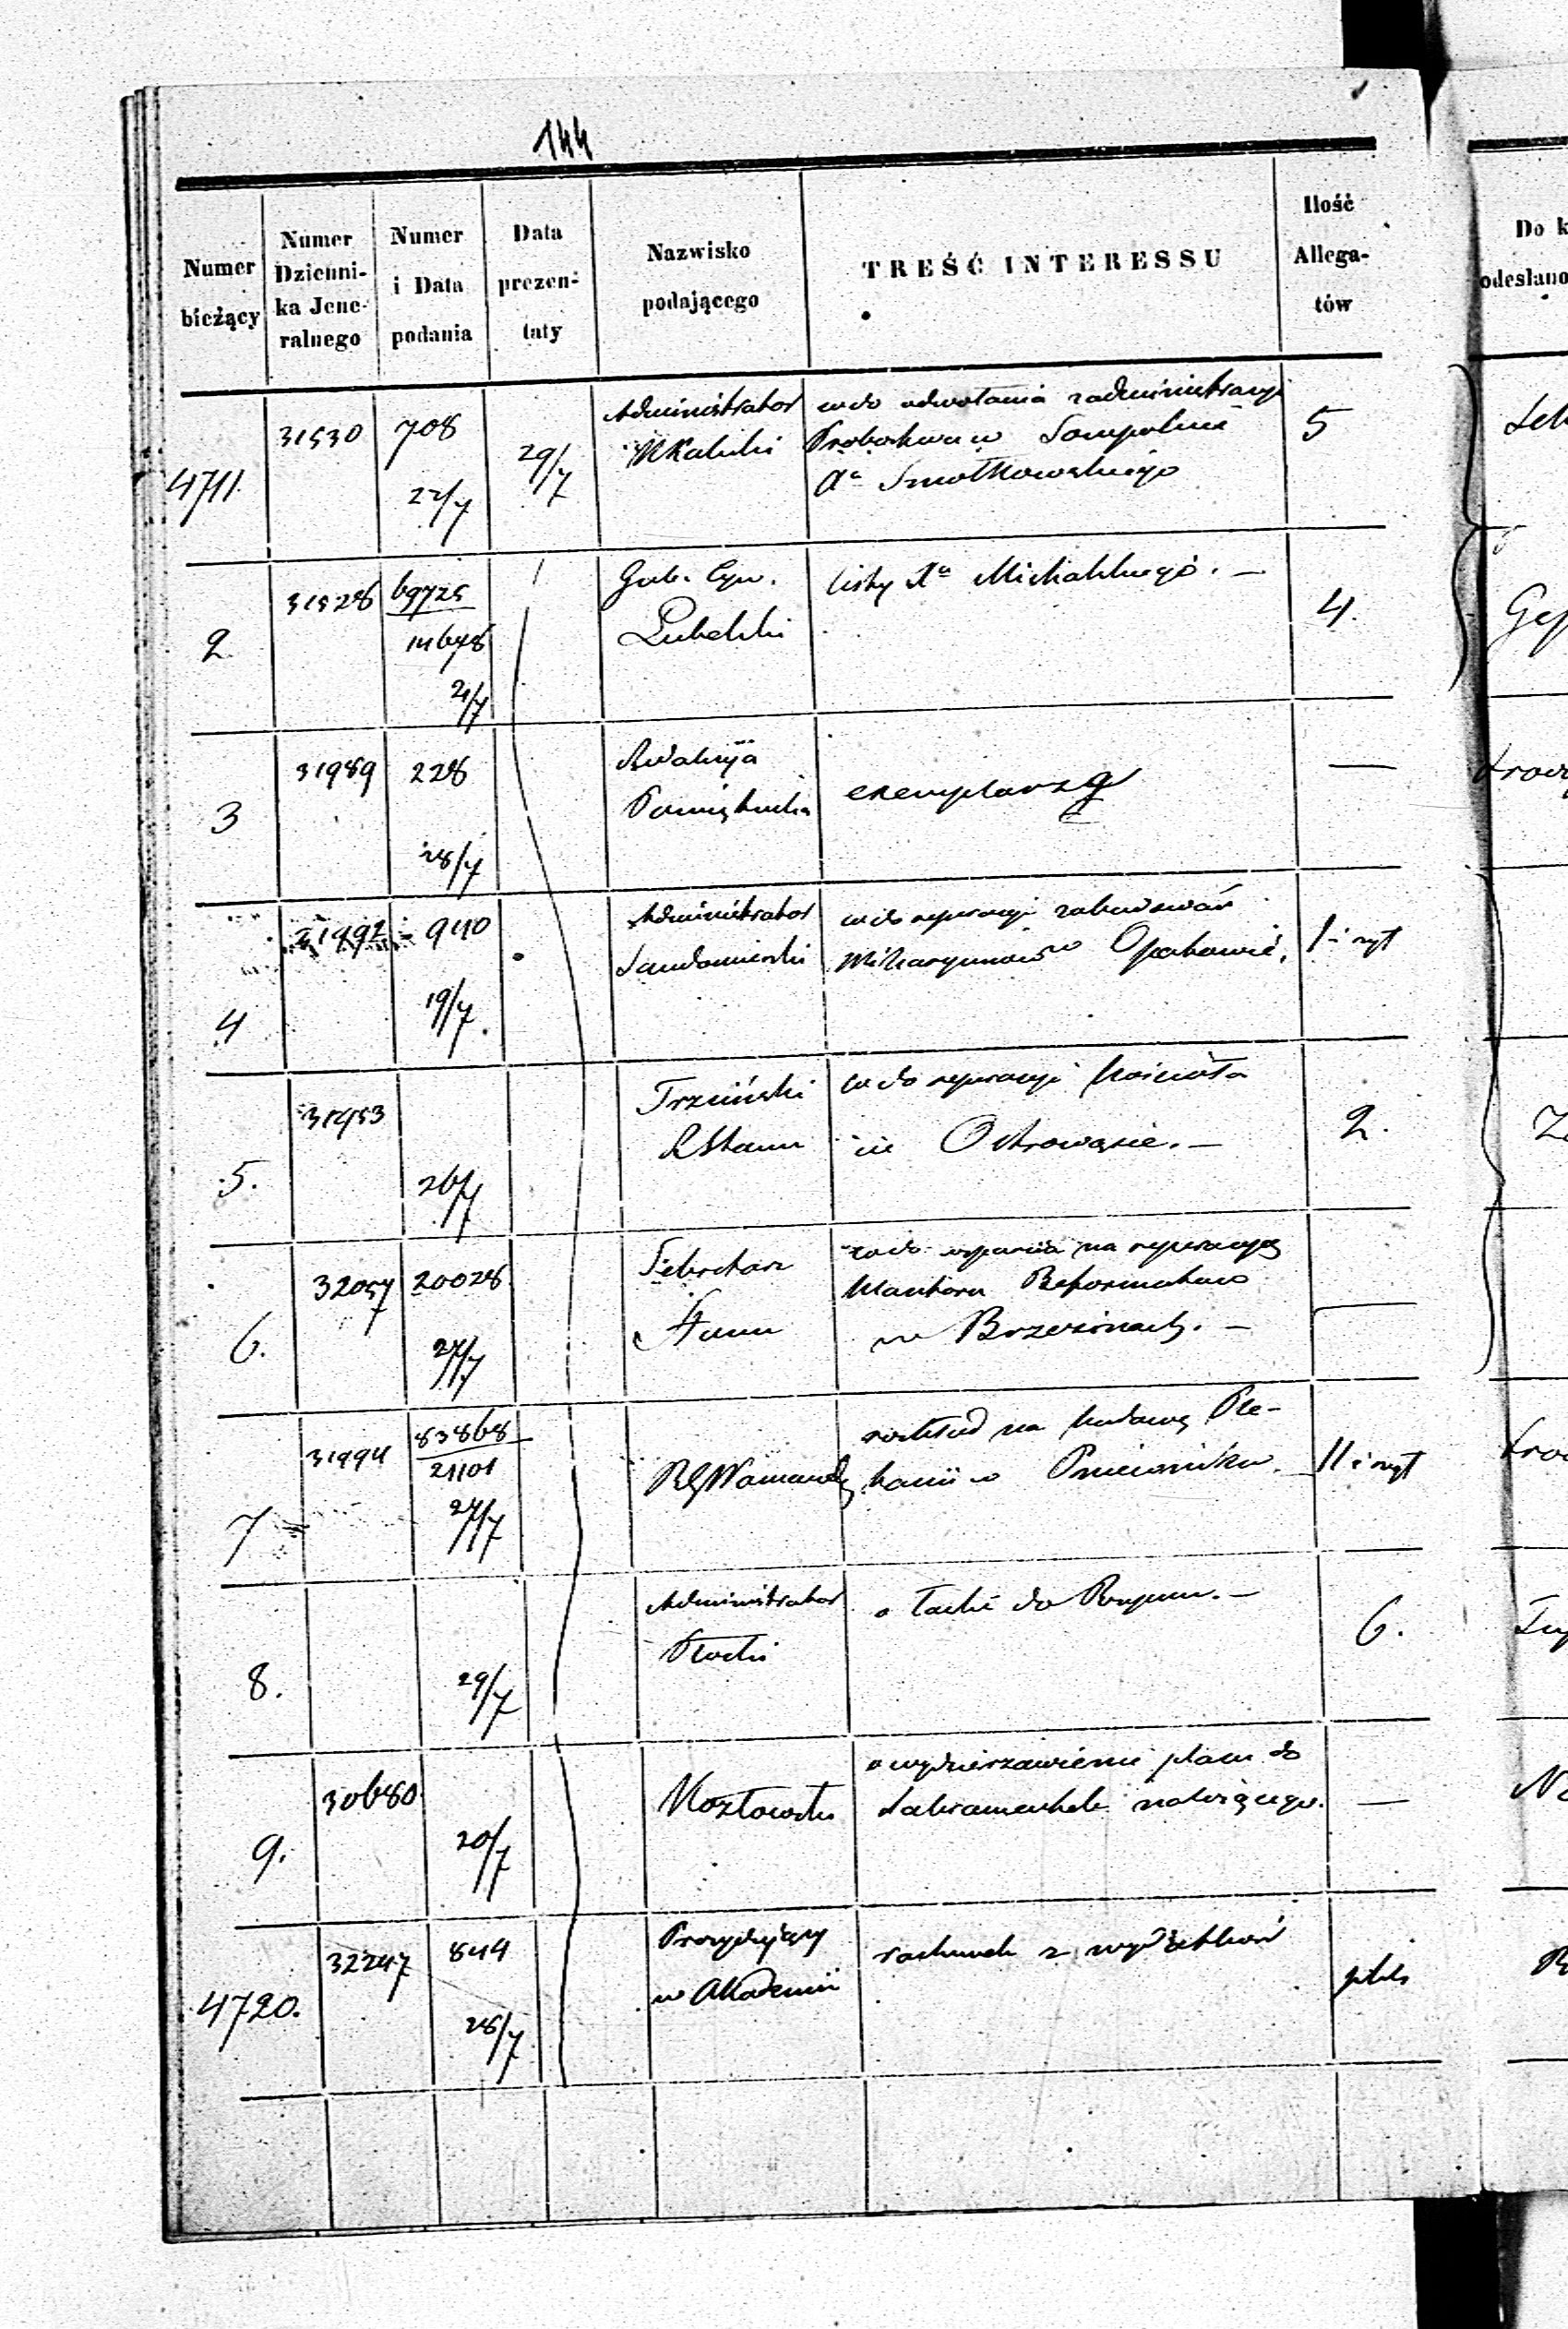 144
Numer bieżący
Numer Dzienni-ka Jene-ralnego
Numer i Data podania
Data prezen-taty
Nazwisko podającego
TREŚĆ INTERESSU
Ilość Allega-tów
Do k
odesłano
4711.
31530
708
22/7
29/7
Administrator
Kaliski
co do odwołania z administracyi
Probostwa w Sompolnie
Xa Smołkowskiego
5
2
31528
69725
14678
21/7
Gub. Cyw.
Lubelski
listy Xa Michalskiego. —
4.
3
31989
228
28/7
Redakcyja
Pamiętnika
exemplarz
—
4
31992
940
19/7.
Administrator
Sandomierski
co do reperacyi zabudowań
w Opatowie.
1 i ryt
5.
31953
26/7
Trzciński
R Stanu
co do reperacyi kościoła
w Ostrowąsie. —
2.
6.
32057
20028
27/7
Sekretarz
Stanu
co do wsparcia na reperacyę
klasztoru Reformatów
w Brzezinach. —
7
31994
83868
21101
27/7
RG Warszawski
rozkład na budowę Ple-
banii w
11 i ryt
8.
29/7
Administrator
Płocki
o do Rzymu. —
6.
9.
30680
20/7
Kozłowski
o wydzierżawienie placu do
Sakramentek należącego.
—
4720.
32247
844
28/7
Prezydujący
w Akademii
rachunek z
plik